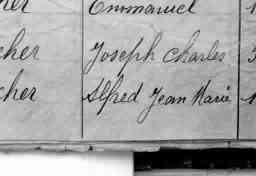 her Emmanuel 1
cher Joseph Charles 3
cher Alfred Jean Marie 1